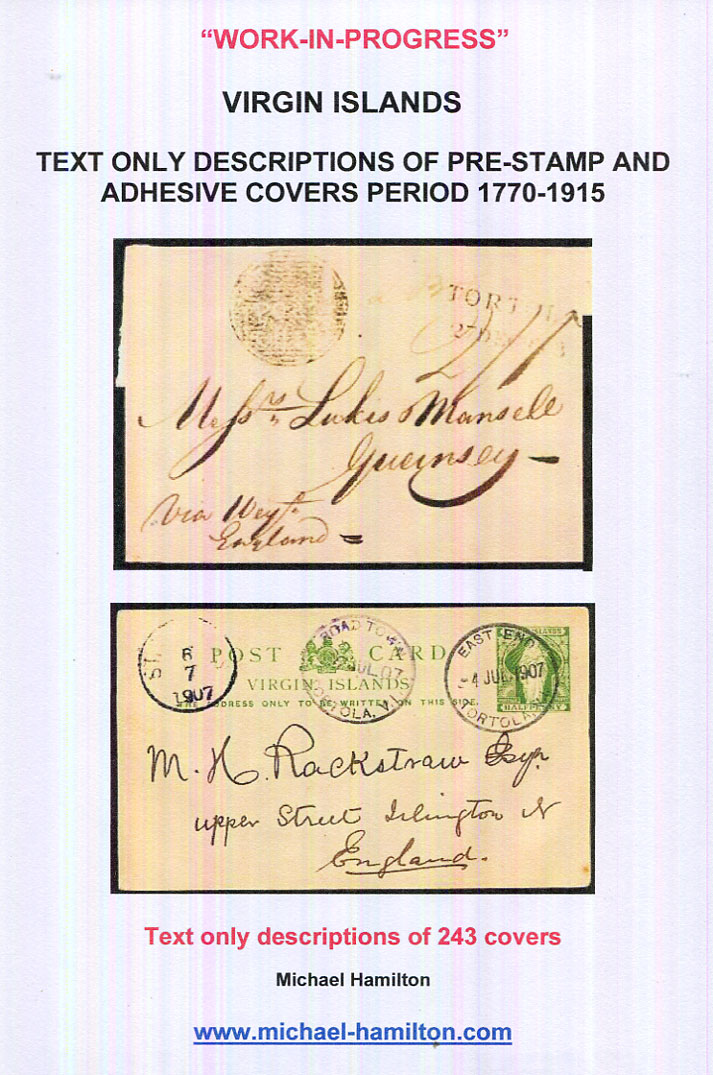 “WORK-IN-PROGRESS”
VIRGIN ISLANDS
TEXT ONLY DESCRIPTIONS OF PRE-STAMP AND
ADHESIVE COVERS PERIOD 1770-1915
TORTOLA
2/1
Messrs Lukis & Mansell
Guernsey
Via Weyth
England
ST
6
7
1907
POST CARD
VIRGIN ISLANDS
THE ADDRESS ONLY TO BE WRITTEN ON THIS SIDE.
ROAD TOWN
JUL 07
TORTOLA. V.I.
EAST END
4 JUL 1907
TORTOLA
ISLANDS
HALFPENNY
M. H. Rackstraw Esqr.
upper Street Islington N
England.
Text only descriptions of 243 covers
Michael Hamilton
www.michael-hamilton.com